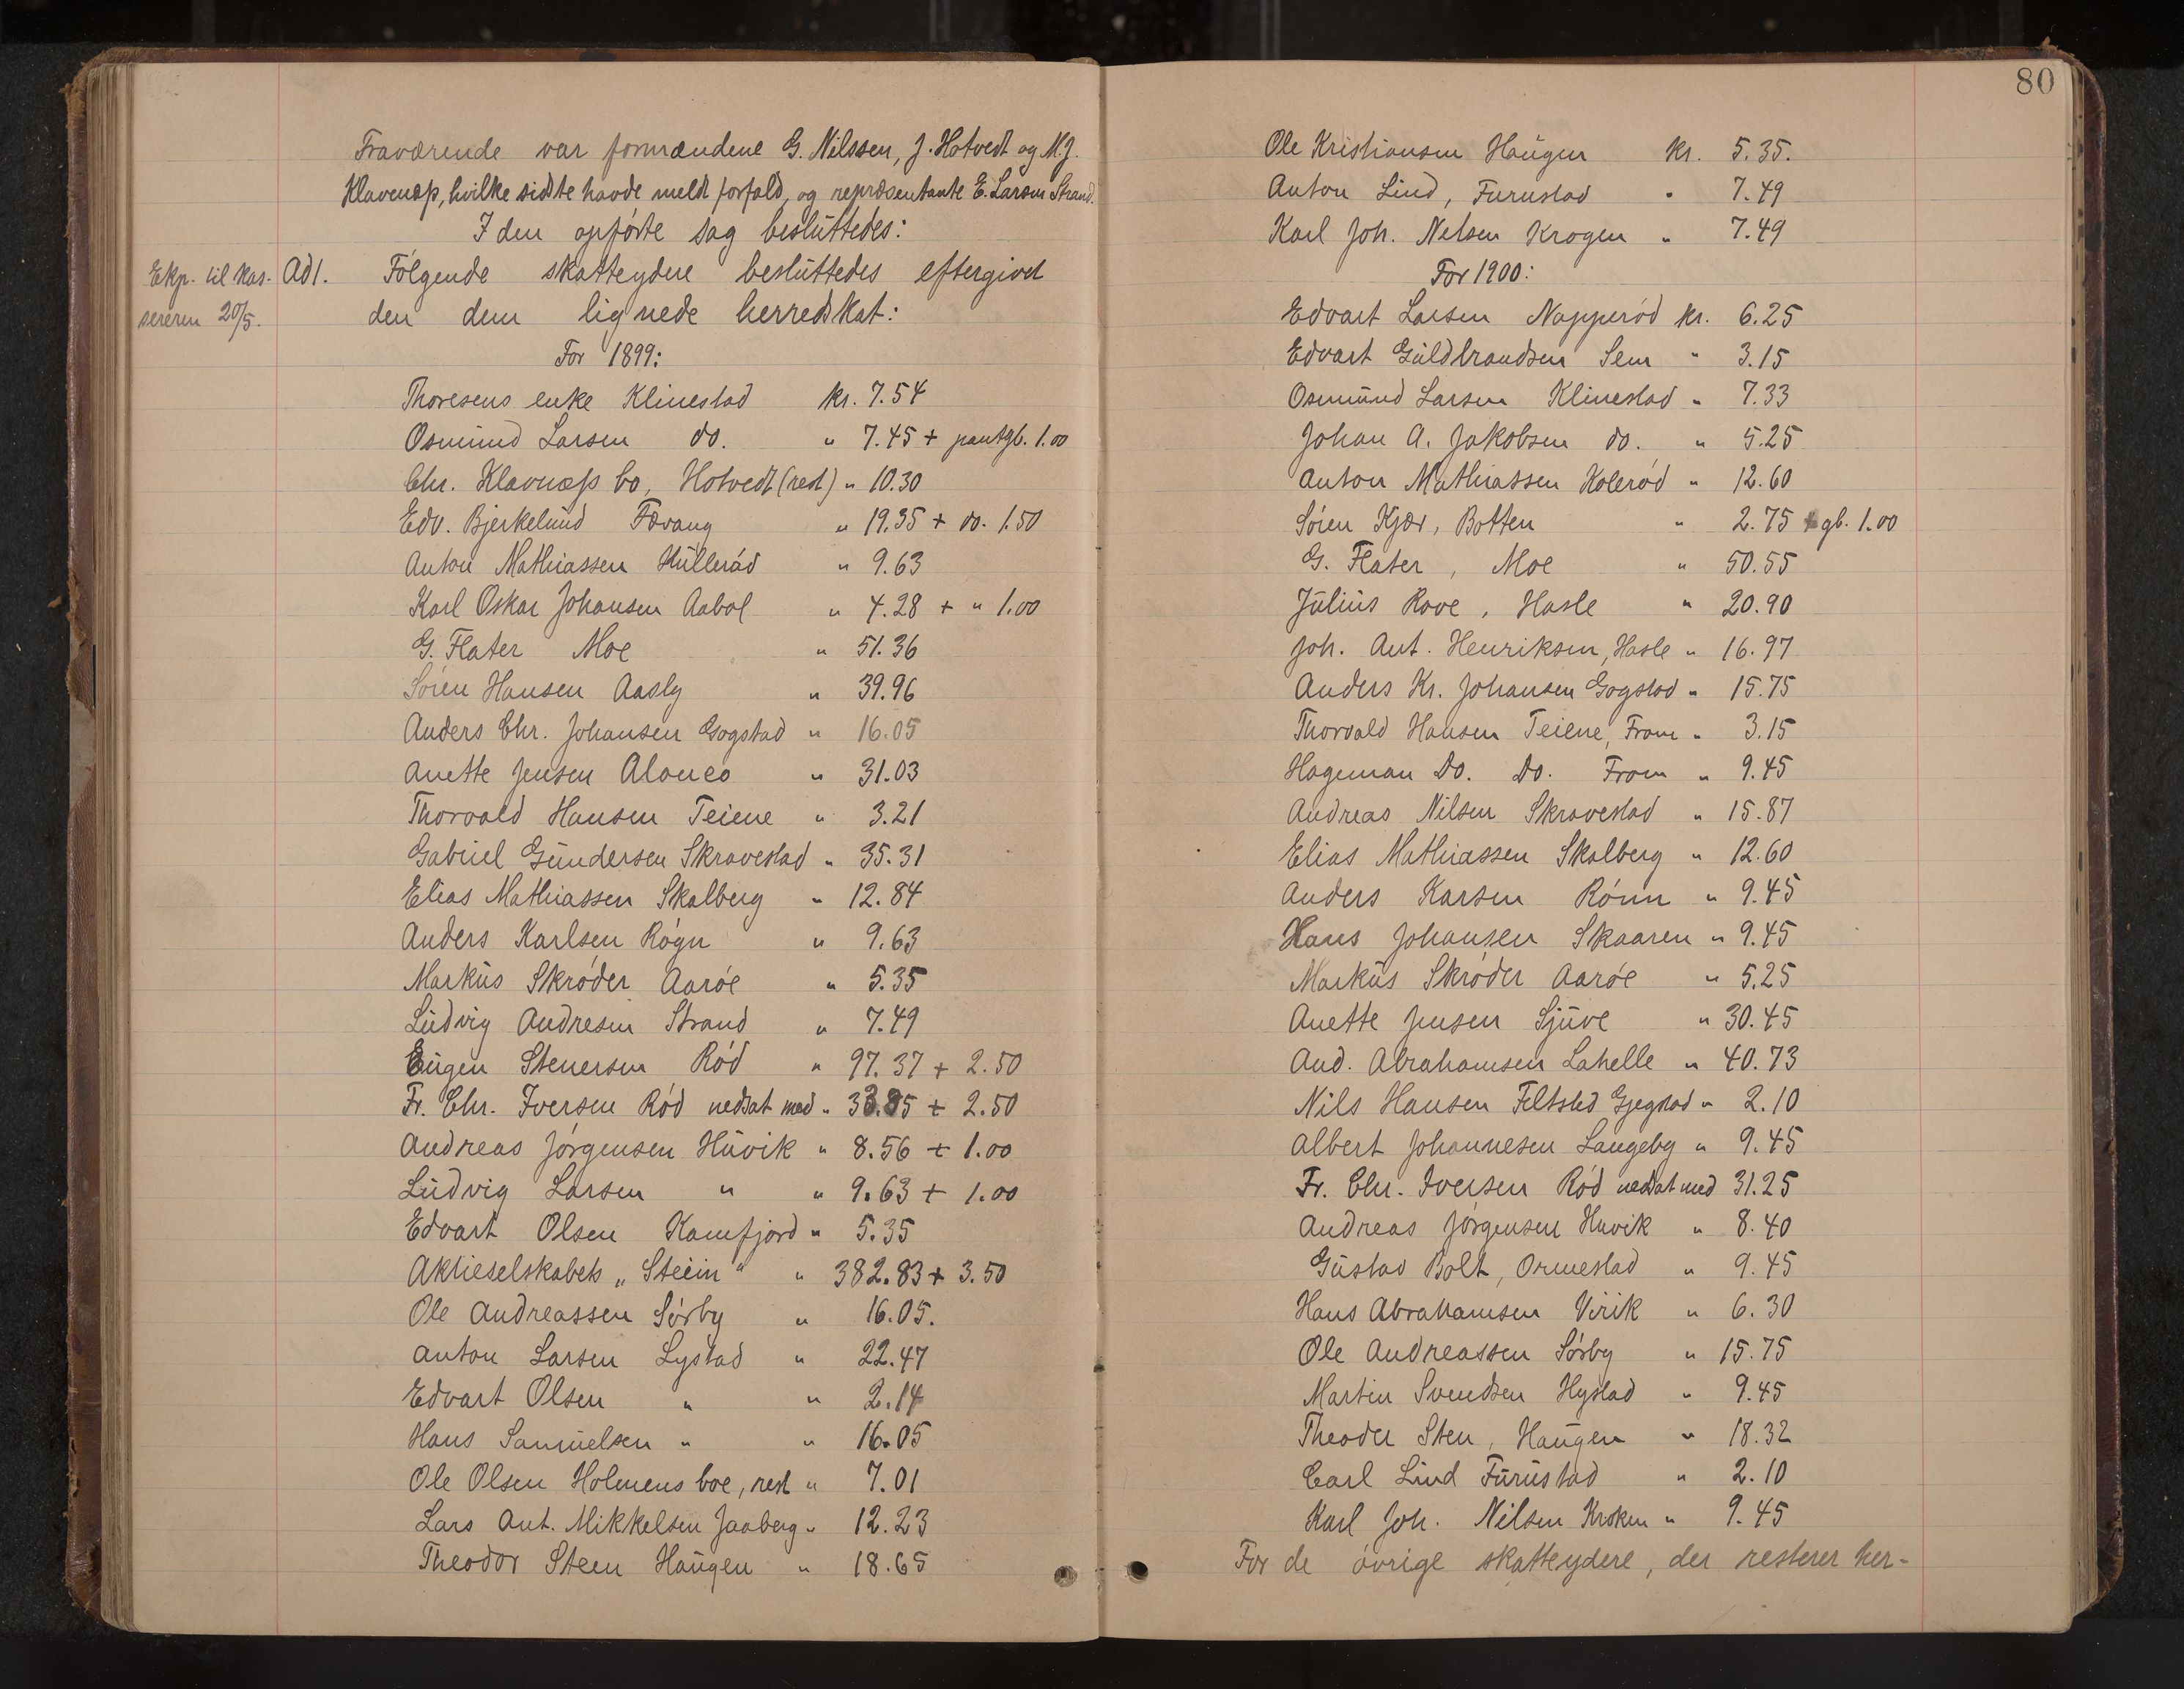 Fraværende var formændene G. Nilssen, J. Hotvedt og M.J.
Klavenæss, hvilke sidste havde meldt forfald, og repræsentante E. Larsen Strand.
I den opførte sag besluttedes:
Ekp. til kas-
sereren 20/5.
Ad 1. Følgende skatteydere besluttedes eftergivet
den dem lignede herredskat:
For 1899:
Thoresens enke Klinestad kr. 7.54
Osmund Larsen do. " 7.45 + pantgb. 1.00
Chr. Klavnæss bo, Hotvedt (rest) " 10.30
Edv. Bjerkelund Færang " 19.35 + do. 1.50
Anton Mathiassen Hullerød " 9.63
Karl Oskar Johansen Aabol " 4.28 + " 1.00
G. Flater Moe " 51.36
Søren Hansen Aasly " 39.96
Anders Chr. Johansen Gogstad " 16.05
Anette Jensen Aloneo " 31.03
Thorvald Hansen Teiene " 3.21
Gabriel Gundersen Skravestad " 35.31
Elias Mathiassen Skalberg " 12.84
Anders Karlsen Røgn " 9.63
Markus Skrøder Aarøe " 5.35
Ludvig Andresen Strand " 7.49
Eugen Stenersen Rød " 97.37 + 2.50
Fr. Chr. Iversen Rød nedsat med " 33.85 + 2.50
Andreas Jørgensen Huvik " 8.56 + 1.00
Ludvig Larsen " " 9.63 + 1.00
Edvart Olsen Kamfjord " 5.35
Aktieselskabets "Steein" " 382.83 + 3.50
Ole Andreassen Sørby " 16.05.
Anton Larsen Lystad " 22.47
Edvart Olsen " " 2.14
Hans Samuelsen " " 16.05
Ole Olsen Holmens boe, rest " 7.01
Lars Ant. Mikkelsen Jaaberg " 12.23
Theodor Steen Haugen " 18.65
80
Ole Kristiansen Haugen kr. 5.35.
Anton Lind, Furustad " 7.49
Karl Joh. Nelsen Krogen " 7.49
For 1900:
Edvart Larsen Napperød kr. 6.25
Edvart Guldbrandsen Sem " 3.15
Osmund Larsen Klinestad " 7.33
Johan A. Jakobsen do. " 5.25
Anton Mathiassen Holerød " 12.60
Søren Kjær, Botten " 2.75 + gb. 1.00
G. Flater, Moe " 50.55
Julius Rove, Hasle " 20.90
Joh. Ant. Henriksen, Hasle " 16.97
Anders Kr. Johansen Gogstad " 15.75
Thorvald Hansen Teiene, Fram " 3.15
Hageman Do. Do. Fram " 9.45
Andreas Nilsen Skravestad " 15.87
Elias Mathiassen Skalberg " 12.60
Anders Karsen Rønn " 9.45
Hans Johansen Skaaren " 9.45
Markus Skrøder Aarøe " 5.25
Anette Jensen Sjuve " 30.45
And. Abrahamsen Lahelle " 40.73
Nils Hansen Feltsted Gjegstad " 2.10
Albert Johannesen Langeby " 9.45
Fr. Chr. Iversen Rød nedsat med 31.25
Andreas Jørgensen Huvik " 8.40
Gustav Bolt, Ormestad " 9.45
Hans Abrahamsen Virik " 6.30
Ole Andreassen Sørby " 15.75
Martin Svendsen Hystad " 9.45
Theoder Sten, Haugen " 18.32
Carl Lind Furustad " 2.10
Karl Joh. Nilsen Kroken " 9.45
For de øvrige skatteydere, der resterer her-